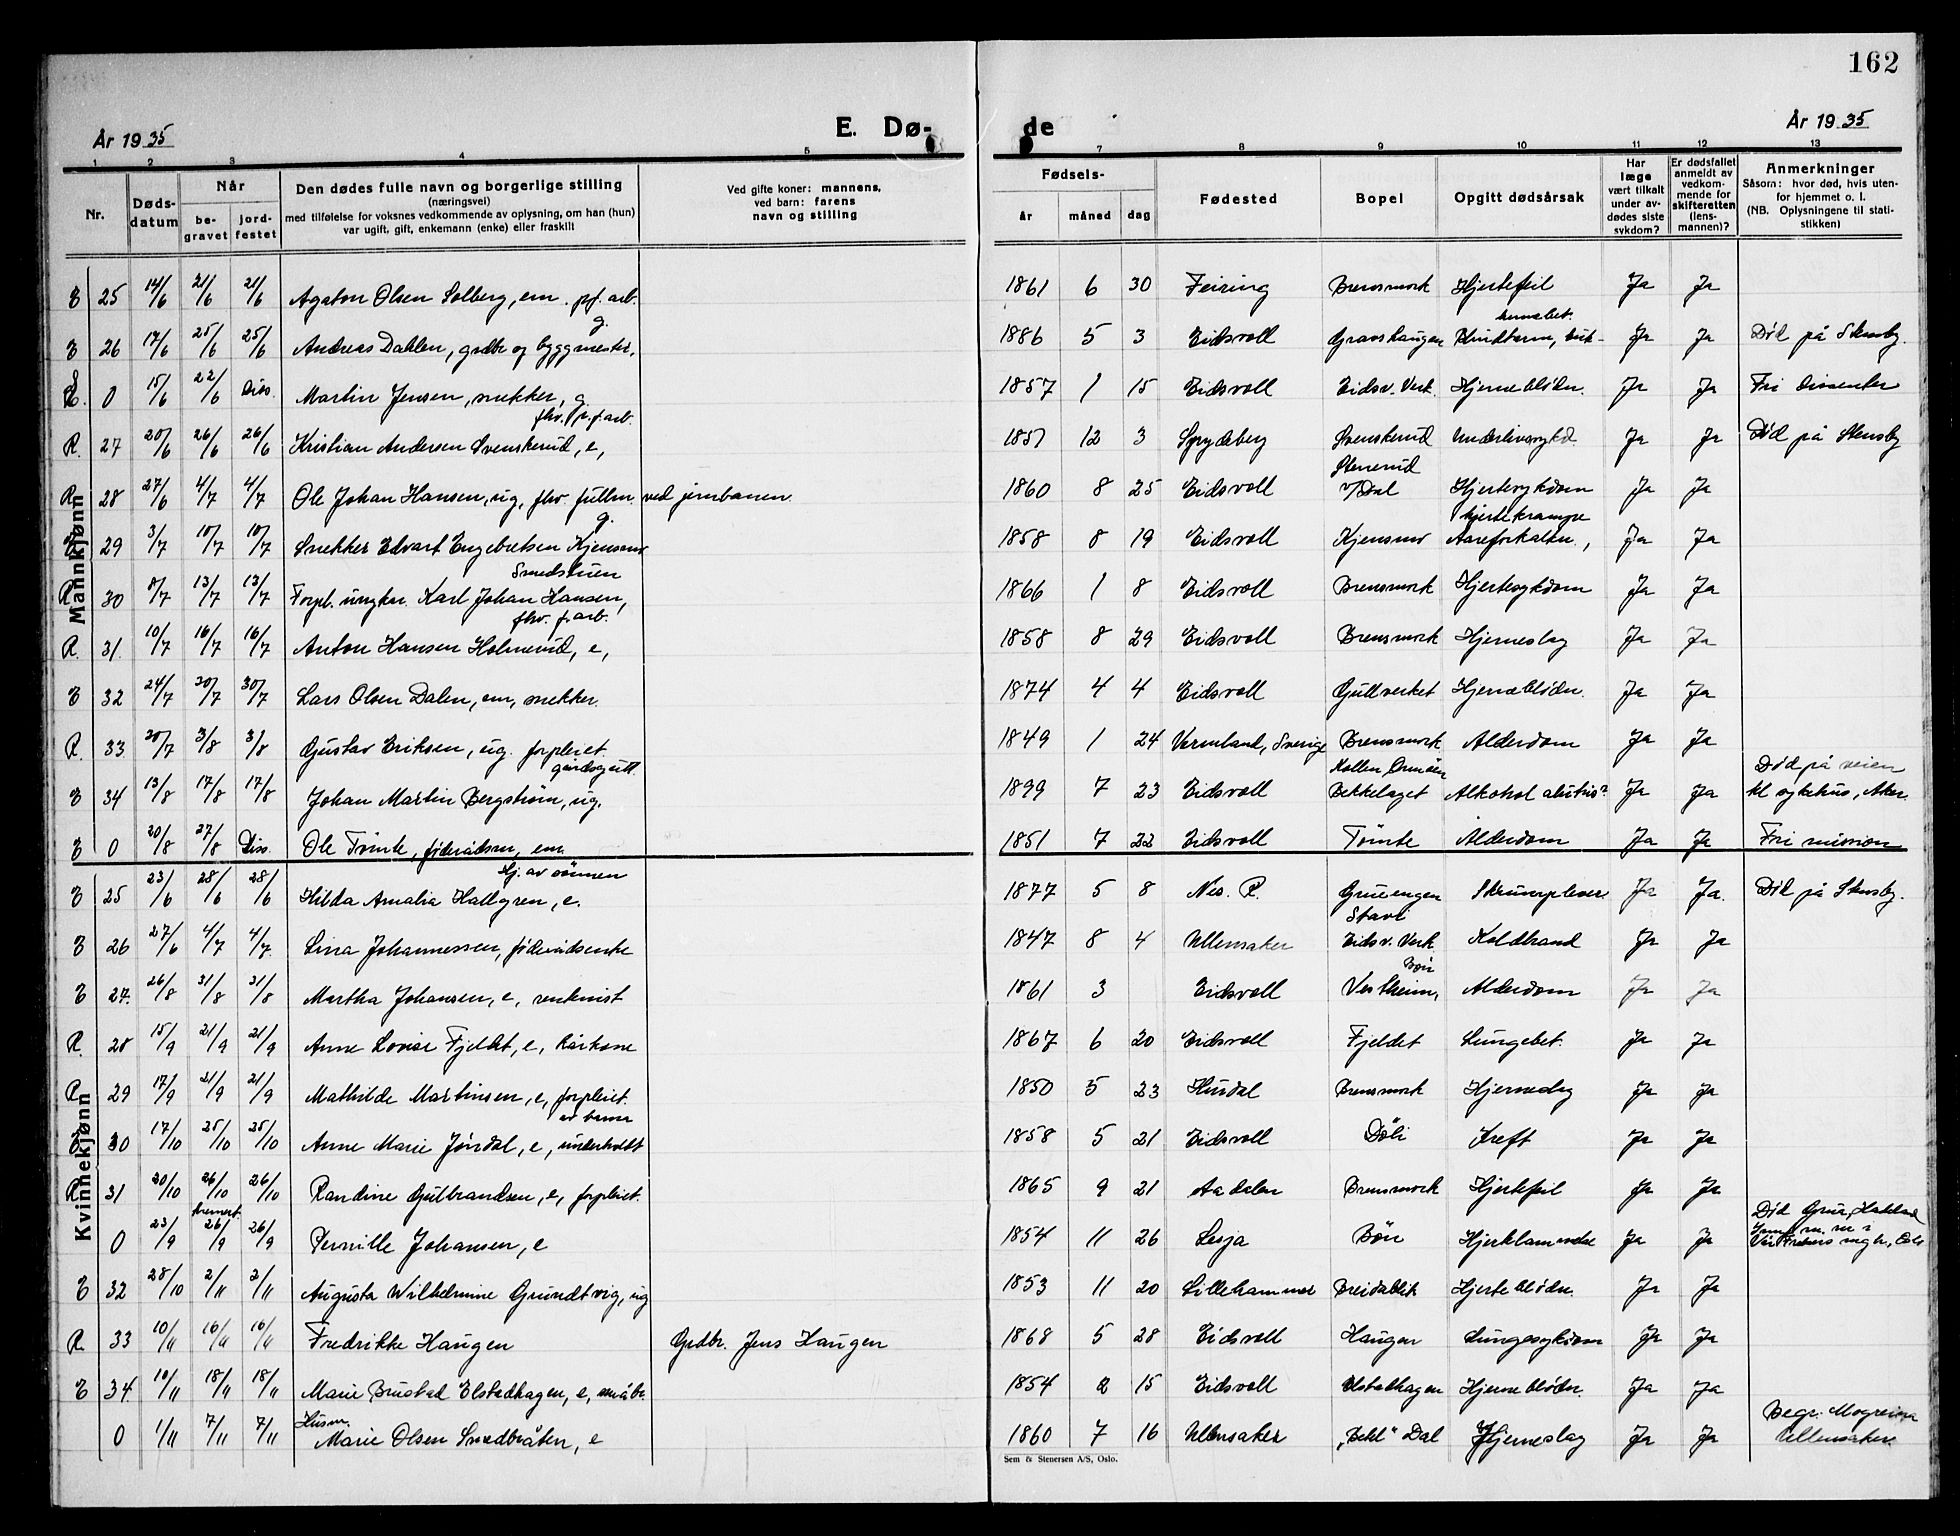 162
År 1935 E. Dø- de År 1935
1 2 3 4 5 7 8 9 10 11 12 13
Nr. Døds-datum Når be-gravet jord-festet
Den dødes fulle navn og borgerlige stilling
(næringsvei)
med tilføielse for voksnes vedkommende av oplysning, om han (hun)
var ugift, gift, enkemann (enke) eller fraskilt
Ved gifte koner: mannens,
ved barn: farens
navn og stilling
Fødsels- år måned dag
Fødested
Bopel
Opgitt dødsårsak
Har læge vært tilkalt under av-dødes siste sykdom?
Er dødsfallet anmeldt av vedkom-mende for skifteretten (lens-mannen)?
Anmerkninger
Såsom: hvor død, hvis uten-
for hjemmet o. l.
(NB. Oplysningene til stati-
stikken)
Mannkjønn
E 25 14/6 21/6 21/6 Agaton Olsen Solberg, em. pf. arb. 1861 6 30 Feiring Brensmork Hjertefeil Ja Ja
E 26 17/6 25/6 25/6 Andreas Dahlen, grdbr og byggmester, g. 1886 5 3 Eidsvoll Gravshaugen Blindtarm, buk- hinnebet. Ja Ja Död på Stensby.
E. 0 15/6 22/6 Diss Martin Jensen, snekker, g. 1857 1 15 Eidsvoll Eidsv. Verk. Hjerneblödn. Ja Ja Fri dissenter
R. 27 20/6 26/6 26/6 Kristian Andersen Svenskerud, e, fhv. p.f. arb. 1851 12 3 Spydeberg Svenskerud Underlivssykd. Ja Ja Död på Stensby
R 28 27/6 4/7 4/7 Ole Johan Hansen, ug, fhv. fullm. ved jernbanen 1860 8 25 Eidsvoll Stenerud v/Dal Hjertesykdom Ja Ja
E 29 3/7 10/7 10/7 Snekker Edvart Engebretsen Kjensmo g. 1858 8 19 Eidsvoll Kjensmo Aareforkalkn., hjertekrampe Ja Ja
R 30 8/7 13/7 13/7 Forpl. ungkar Karl Johan Hansen, Smedstuen 1866 1 8 Eidsvoll Brensmork Hjertesykdom Ja Ja
R. 31. 10/7 16/7 16/7 Anton Hansen Holmerud, e, fhv. f. arb. 1858 8 29 Eidsvoll Brensmork Hjerneslag Ja Ja
E 32 24/7 30/7 30/7 Lars Olsen Dalen, em, snekker. 1874 4 4 Eidsvoll Gullverket Hjerneblödn. Ja Ja
R. 33 30/7 3/8 3/8 Gustav Eriksen, ug. forpleiet 1849 1 24 Vermland, Sverige Brensmork Alderdom Ja Ja
E 34 13/8 17/8 17/8 Johan Martin Bergström, ug, gårdsgutt. 1899 7 23 Eidsvoll Bekkelaget Alkohol Ja Ja Död på veien til sykehus, Aker.
E 0 20/8 27/8 Diss. Ole Tömte, föderådsm, em. 1851 7 22 Eidsvoll Tömte Alderdom Ja Ja Fri mission
Kvinnekjønn
E 25 23/6 28/6 28/6 Hilda Amalia Hallgren, e. Hj. av sönnen 1877 5 8 Nes. R. Grueengen Skrumplever Ja Ja. Död på Stensby.
E 26 27/6 4/7 4/7. Lina Johannessen, föderådsenke 1847 8 4 Ullensaker Stavi Eidsv. Verk Koldbrand Ja Ja
E 27. 26/8 31/8 31/8 Martha Johansen, e, renkonist 1861 3 Eidsvoll Vestheim, Bön Alderdom Ja Ja
R. 28 15/9 21/9 21/9 Anne Lovise Fjeldet, e, kårkone 1867 6 20 Eidsvoll Fjeldet Lungebet. Ja Ja
R 29 17/9 21/9 21/9 Mathilde Martinsen, e, forpleiet. 1850 5 23 Hurdal Brensmork Hjerneslag Ja Ja
E 30 17/10 25/10 25/10 Anne Marie Jördal, e, underholdt av barna 1858 5 21 Eidsvoll Döli Kreft Ja Ja
R 31 20/10 26/10 26/10 Randine Gulbrandsen, e, forpleiet. 1865 9 21 Aadalen Brensmork Hjertefeil Ja Ja
0 23/9 kremert. 26/9 26/9 Pernille Johansen, e 1854 11 26 Lesja Bön Hjertelammelse Ja Ja Död Grua, Hadeland
E 32 28/10 2/11 2/11 Augusta Wilhelmine Grundtvig, ug 1853 11 20 Lillehammer Breidablik Hjerteblödn. Ja Ja
R 33 10/11 16/11 16/11 Fredrikke Haugen Grdbr. Jens Haugen 1868 5 28 Eidsvoll Haugen Lungesykdom Ja Ja
E 34. 10/11 18/11 18/11 Marie Brustad Elstadhagen, e, småbr. 1854 2 15 Eidsvoll Elstadhagen Hjerneblödn. Ja Ja
0 1/11 7/11 7/11 Husm. Marie Olsen Smedbråten, e 1860 7 16 Ullensaker „Bekk" Dal Hjerneslag Ja Ja Begr. Mogreina Ullensaker.
Sem & Stenersen A/S, Oslo.